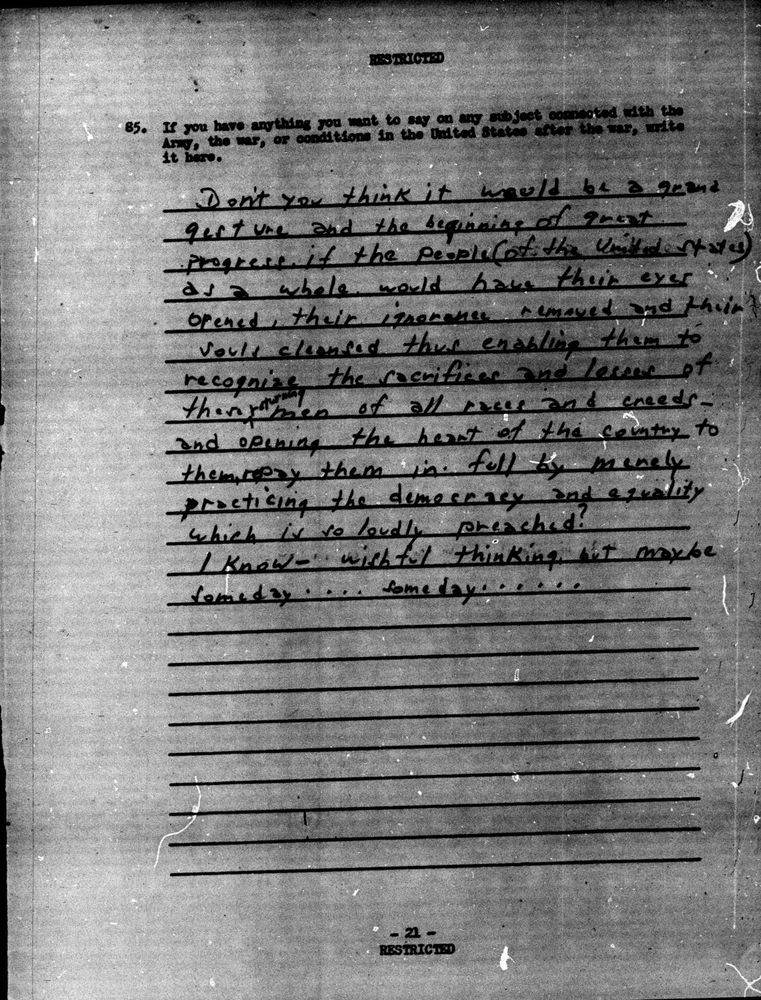 RESTRICTED
85. If you have anything you want to say on any subject connected with the
Army, the war, or conditions in the United States after the war, write
it here.
Don't you think it would be a grand
gesture and the beginning of great
progress if the people (of the United States)
as a whole would have their eyes
opened, their ignorance removed and their
souls cleansed thus enabling them to
recognize the sacrifices and losses of
these returning men of all races and creeds -
and opening the heart of the country to
them, repay them in full by merely
practicing the democracy and equality
which is so loudly preached?
I know - wishful thinking, but maybe
someday .... someday......
- 21 -
RESTRICTED